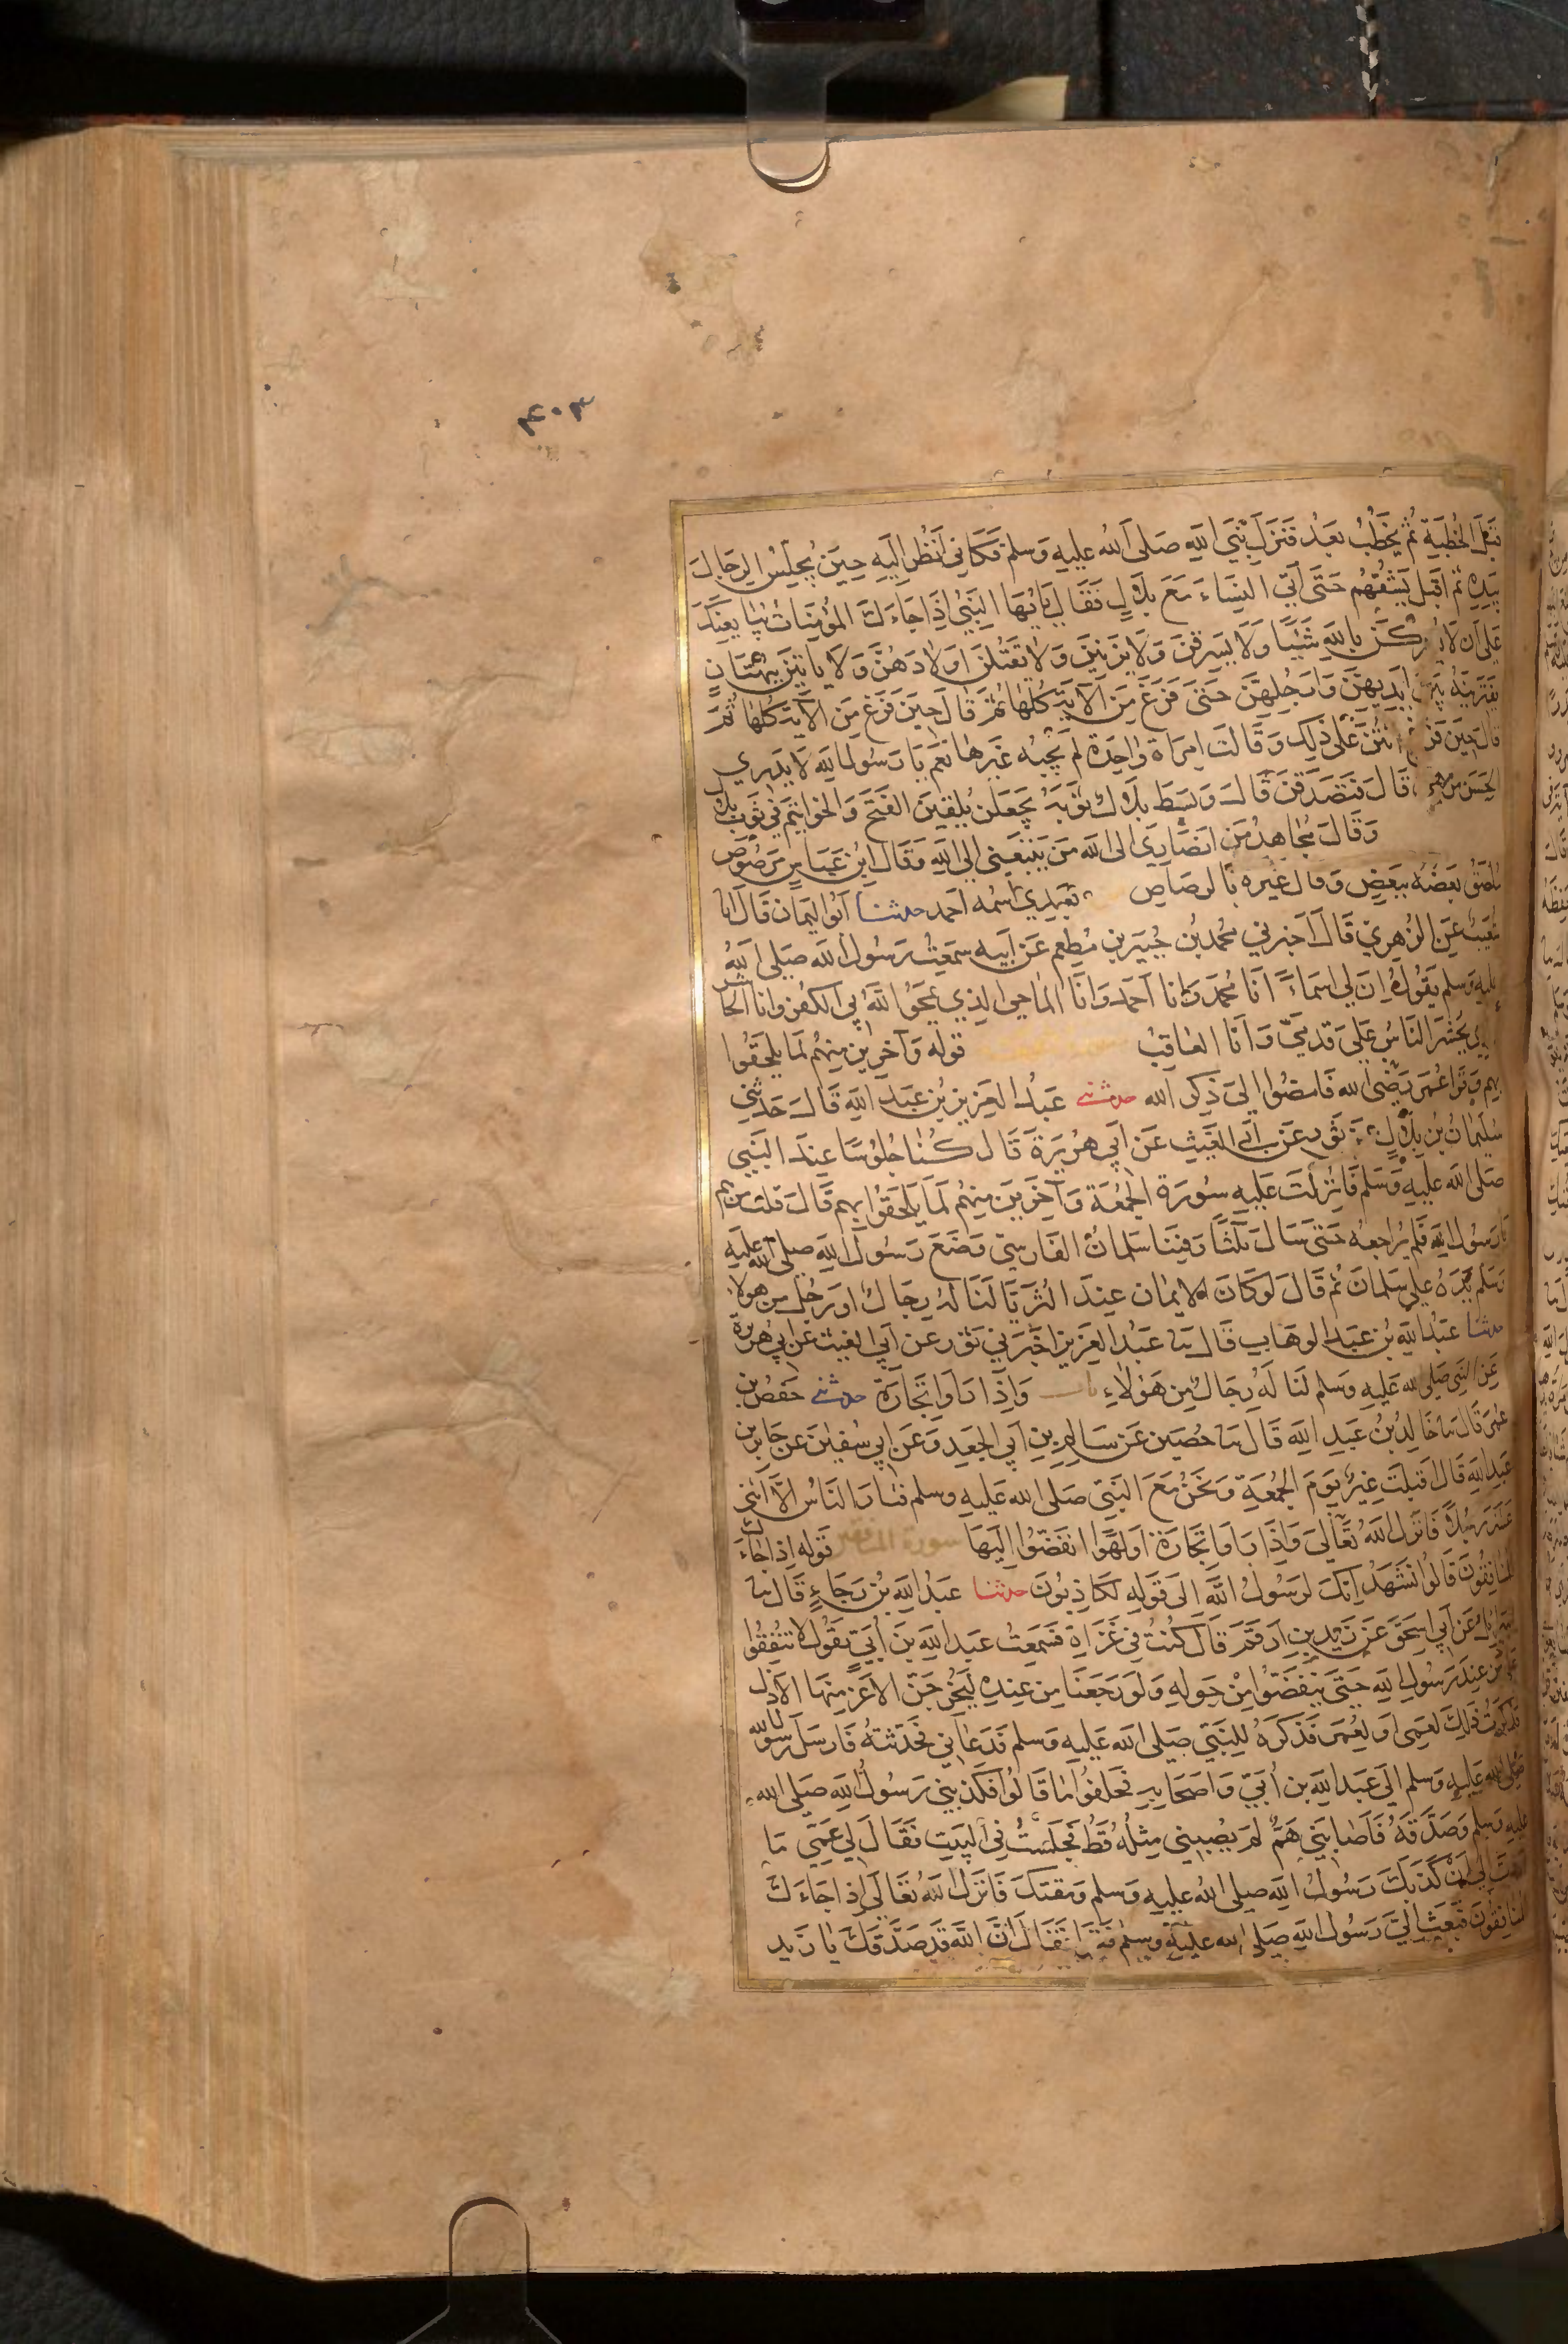 ٤٠٣
قبل الخطبة ثم يخطب بعد فنزل نبي الله صلى الله عليه وسلم فكاني انظر اليه حين يجلس الرجال
بيده ثم اقبل يشقهم حتى اتى النساء مع بلال فقال يايها النبي اذا جاءك المؤمنات يبايعنك
على ان لا يشركن بالله شيئا ولا يسرقن ولا يزنين ولا يقتلن اولادهن ولا ياتين ببهتان
يفترينه بين ايديهن وارجلهن حتى فرغ من الآية كلها ثم قال حين فرغ من الآية كلها ثم
قال حين فرغ انتن على ذلك وقالت امراة واحدة لم يجبه غيرها نعم يا رسول الله لا يدري
الحسن من هي قال فتصدقن قال وبسط بلال ثوبه فجعلن يلقين الفتخ والخواتيم في ثوب بلال
وقال مجاهد من انصاري الى الله من يتبعني الى الله وقال ابن عباس مرصوص
ملصق بعضه ببعض وقال غيره بالرصاص بعدي اسمه احمد حدثنا ابو اليمان قال انا
شعيب عن الزهري قال اخبرني محمد بن جبير بن مطعم عن ابيه سمعت رسول الله صلى الله
عليه وسلم يقول ان لي اسماء انا محمد وانا احمد وانا الماحي الذي يمحو الله بي الكفر وانا الحاشر
الذي يحشر الناس على قدمي وانا العاقب قوله وآخرين منهم لما يلحقوا
بهم وقرا عمر رضي الله فامضوا الى ذكر الله حدثني عبد العزيز بن عبد الله قال حدثني
سليمان بن بلال عن ثور عن ابي الغيث عن ابي هريرة قال كنا جلوسا عند النبي
صلى الله عليه وسلم فانزلت عليه سورة الجمعة وآخرين منهم لما يلحقوا بهم قال قلت من هم
يا رسول الله فلم يراجعه حتى سال ثلثا وفينا سلمان الفارسي وضع رسول الله صلى الله عليه
وسلم يده على سلمان ثم قال لو كان الايمان عند الثريا لنا له رجال او رجل من هولاء
حدثنا عبد الله بن عبد الوهاب قال ثنا عبد العزيز اخبرني ثور عن ابي الغيث عن ابي هريرة
عن النبي صلى الله عليه وسلم لنا له رجال من هولاء باب واذا راوا تجارة حدثني حفص بن
عمر قال ثنا خالد بن عبد الله قال ثنا حصين عن سالم بن ابي الجعد وعن ابي سفين عن جابر بن
عبد الله قال اقبلت عير يوم الجمعة ونحن مع النبي صلى الله عليه وسلم فثار الناس الا اثنى
عشر رجلا فانزل الله تعالى واذا راوا تجارة او لهوا انفضوا اليها سورة المنافقين قوله اذا جاءك
المنافقون قالوا نشهد انك لرسول الله الى قوله لكاذبون حدثنا عبد الله بن رجاء قال ثنا
اسرائيل عن ابي اسحق عن زيد بن ارقم قال كنت في غزاة فسمعت عبد الله بن أبي يقول لا تنفقوا
على من عند رسول الله حتى ينفضوا من حوله ولو رجعنا من عنده ليخرجن الاعز منها الاذل
فذكرت ذلك لعمي او لعمر فذكره للنبي صلى الله عليه وسلم فدعاني فحدثته فارسل رسول الله
صلى الله عليه وسلم الى عبد الله بن أبي واصحابه فحلفوا ما قالوا فكذبني رسول الله صلى الله
عليه وسلم وصدقه فاصابني هم لم يصبني مثله قط فجلست في البيت فقال لي عمي ما
اردت الى ان كذبك رسول الله صلى الله عليه وسلم ومقتك فانزل الله تعالى اذا جاءك
المنافقون فبعث الي رسول الله صلى الله عليه وسلم فقرا فقال ان الله قد صدقك يا زيد